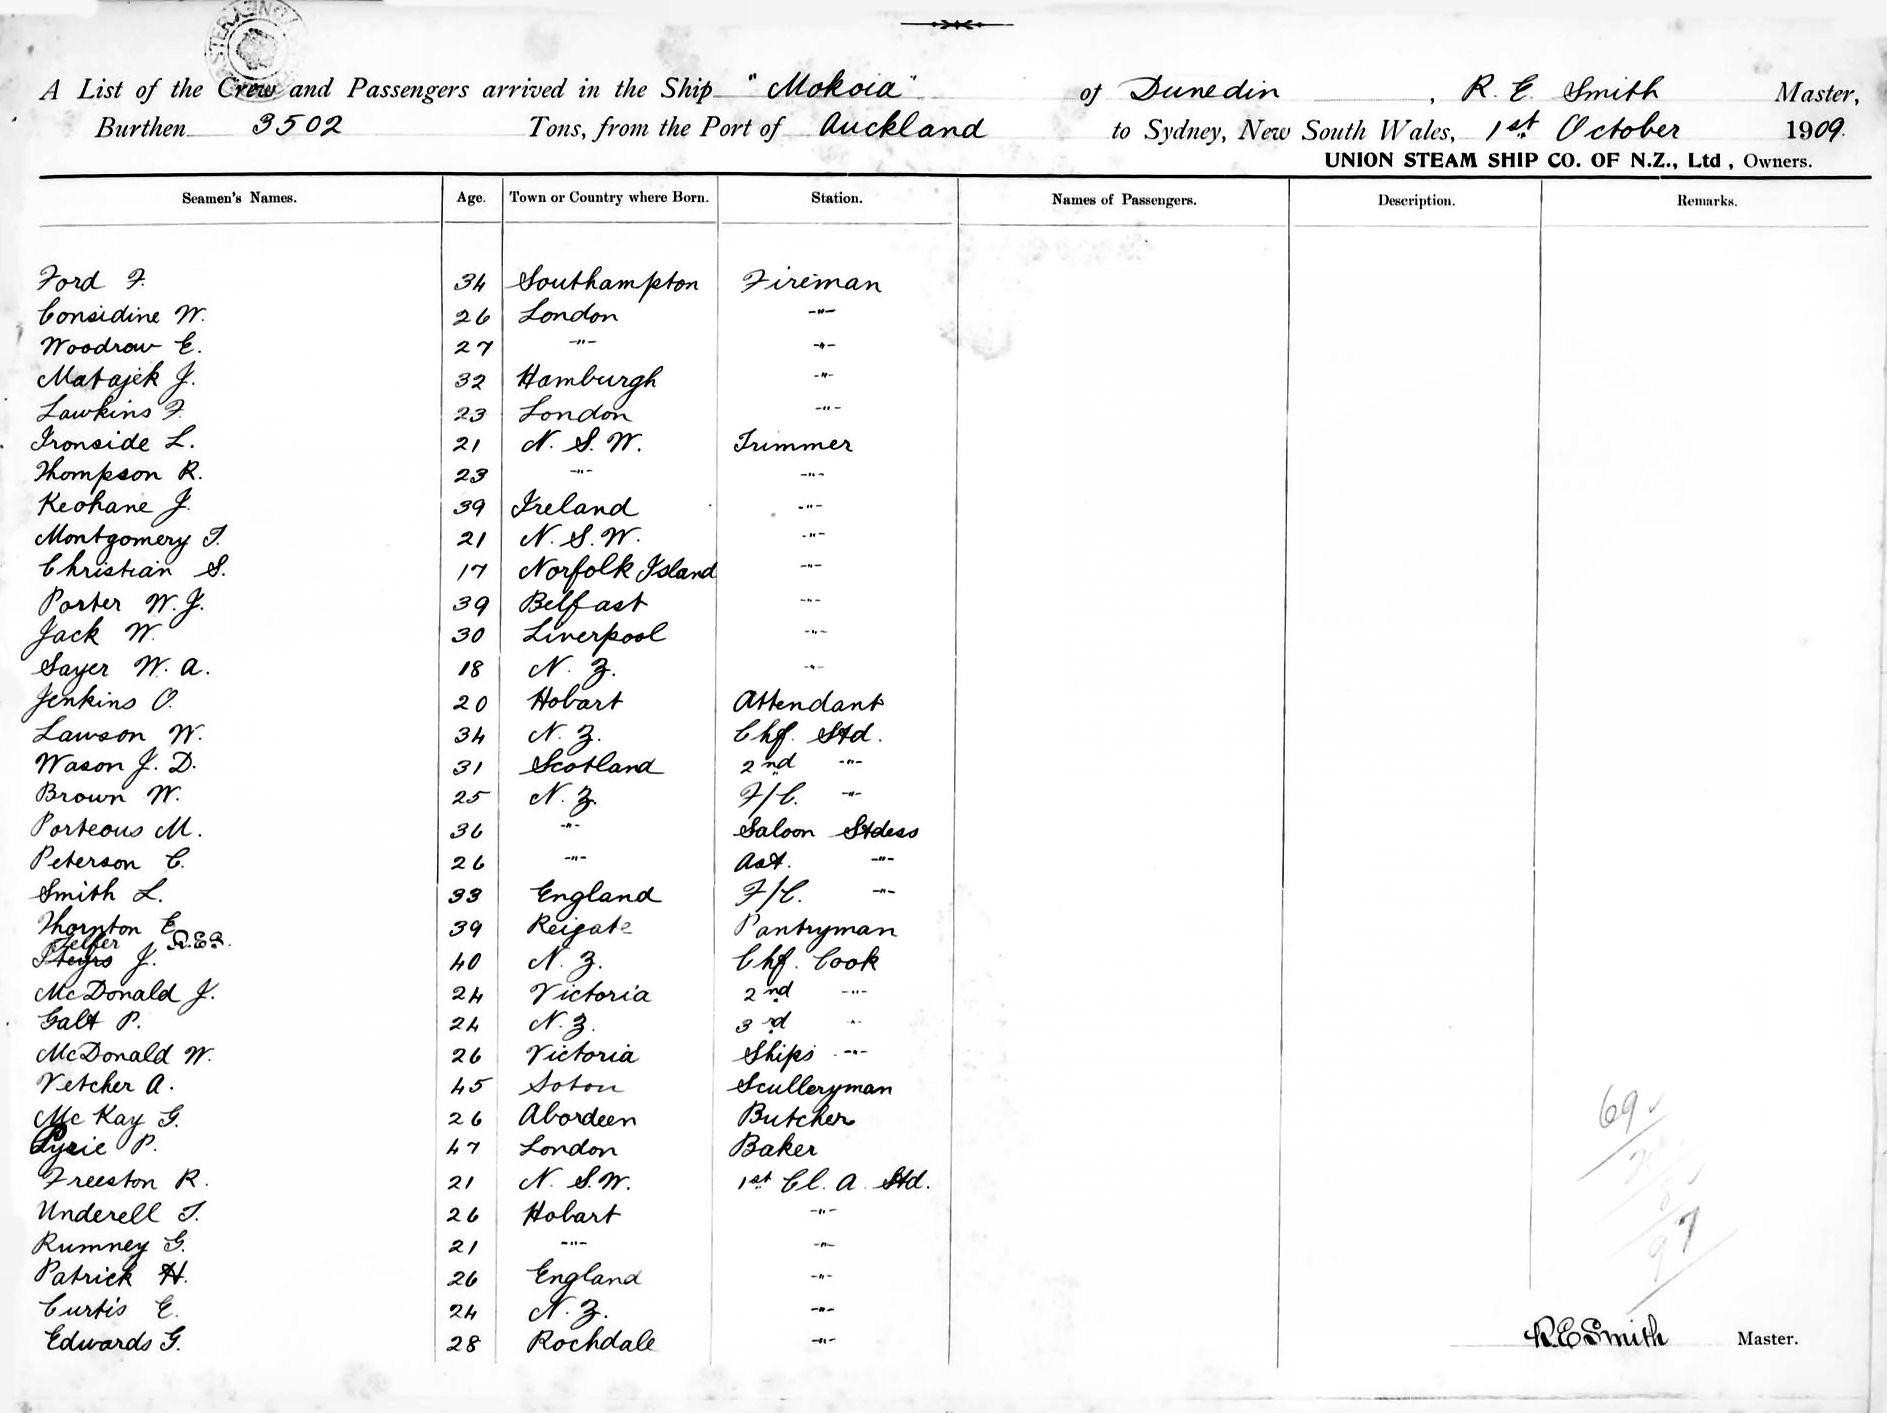 A List of the Crew and Passengers arrived in the Ship "Mokoia" of Dunedin, R. E. Smith Master,
Burthen 3502 Tons, from the Port of Auckland to Sydney, New South Wales, 1st October 1909.
UNION STEAM SHIP CO. OF N.Z., Ltd, Owners.
Seamen's Names. Age. Town or Country where Born. Station. Names of Passengers. Description. Remarks.
Ford F. 34 Southampton Fireman
Considine W. 26 London -"-
Woodrow E. 27 -"- -"-
Matajek J. 32 Hamburgh -"-
Lawkins F. 23 London -"-
Ironside L. 21 N. S. W. Trimmer
Thompson R. 23 -"- -"-
Keohane J. 39 Ireland -"-
Montgomery T. 21 N. S. W. -"-
Christian S. 17 Norfolk Island -"-
Porter W. J. 39 Belfast -"-
Jack W. 30 Liverpool -"-
Sayer W. A. 18 N. Z. -"-
Jenkins O. 20 Hobart Attendant
Lawson W. 34 N. Z. Chf. Std.
Wason J. D. 31 Scotland 2nd -"-
Brown W. 25 N. Z. F/C. -"-
Porteous M. 36 -"- Saloon Stdess
Peterson C. 26 -"- Ast. -"-
Smith L. 33 England F/C. -"-
Thornton E. 39 Reigate Pantryman
Telfer R.E.S.
J. 40 N. Z. Chf. Cook
McDonald J. 24 Victoria 2nd -"-
Galt P. 24 N. Z. 3rd -"-
McDonald W. 26 Victoria Ships -"-
Vetcher A. 45 Soton Sculleryman
McKay G. 26 Abordeen Butcher
P. 47 London Baker
Freeston R. 21 N. S. W. 1st Cl. A Std.
Underell T. 26 Hobart -"-
Rumney G. 21 -"- -"-
Patrick H. 26 England -"-
Curtis E. 24 N. Z. -"-
Edwards G. 28 Rochdale -"-
69
97
R.E.Smith Master.